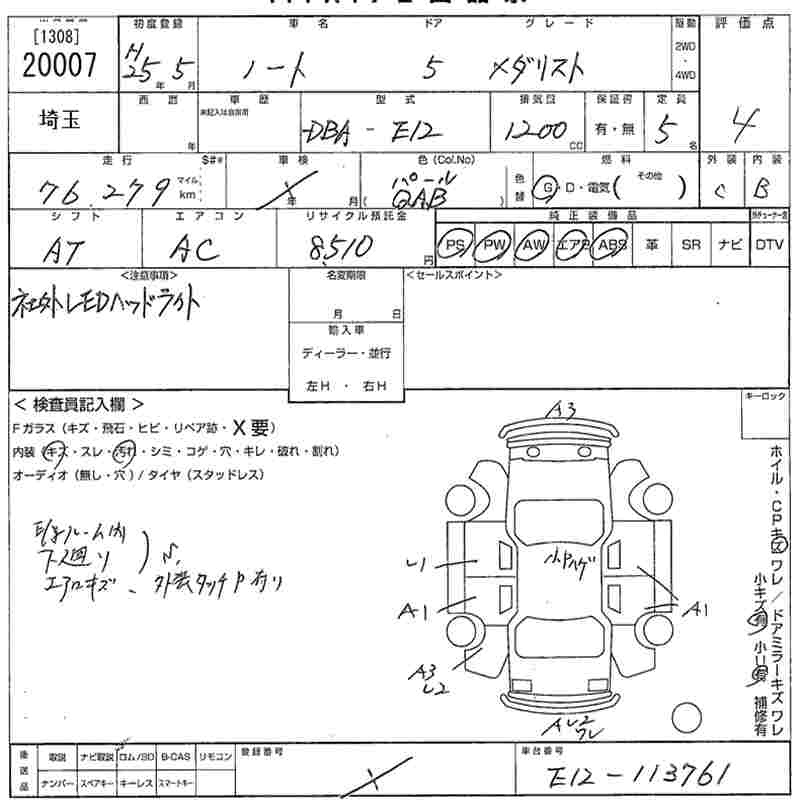 [1308]
20007
初度登録
H25年 5月
車名
ノート
ドア
5
グレード
メダリスト
駆動
2WD
・
4WD
評価点
4
埼玉
西暦
年
車歴
未記入は自家用
型式
DBA - E12
排気量
1200 CC
保証書
有・無
定員
5名
走行
76.279 マイル km
$#※
車検
年 月
色(Col.No)
パール
(QAB)
色替
燃料
G・D・電気( その他 )
外装
C
内装
B
シフト
AT
エアコン
AC
リサイクル預託金
8,510 円
純正装備品
PS PW AW エアB ABS 革 SR ナビ DTV
<注意事項>
社外LEDヘッドライト
名変期限
月 日
輸入車
ディーラー・並行
左H ・ 右H
<セールスポイント>
< 検査員記入欄 >
Fガラス(キズ・飛石・ヒビ・リペア跡・X要)
内装(キズ・スレ・汚れ・シミ・コゲ・穴・キレ・破れ・割れ)
オーディオ(無し・穴)/タイヤ(スタッドレス)
下廻り
エアロキズ、外装タッチP有り
キーロック
A3
L1
小Pハゲ
A1
A1
A3
L2
AL2
ワレ
ホイル・CPキズワレ/ドアミラーキズワレ
小キズ有 小U有 補修有
後送品
取説 ナビ取説 ロム/SD B-CAS リモコン
ナンバー スペアキー キーレス スマートキー
登録番号
車台番号
E12-113761